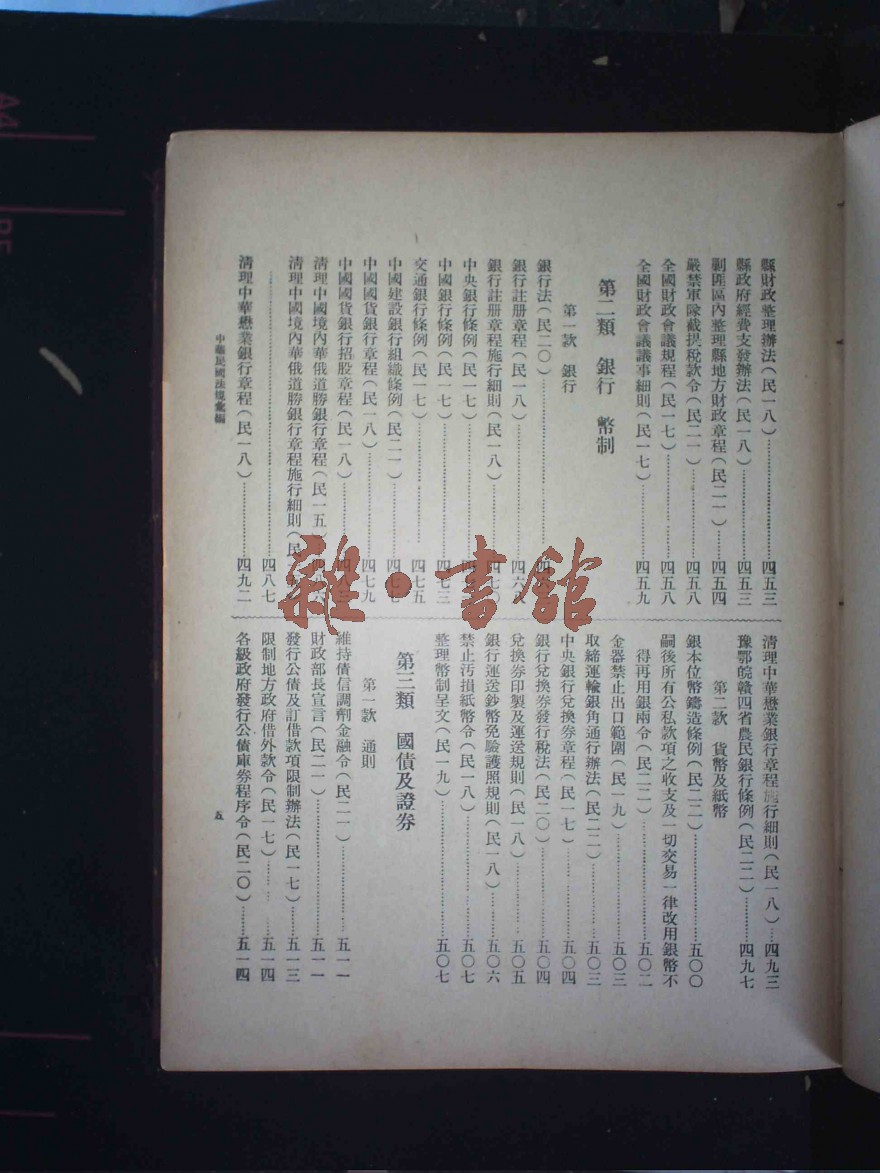 縣財政整理辦法(民一八)……四五三
縣政府經費支發辦法(民一八)……四五三
剿匪區內整理縣地方財政章程(民二一)……四五四
嚴禁軍隊截提稅款令(民二一)……四五八
全國財政會議規程(民一七)……四五八
全國財政會議議事細則(民一七)……四五九
第二類 銀行 幣制
第一款 銀行
銀行法(民二〇)……
銀行註册章程(民一八)……四六
銀行註册章程施行細則(民一八)……四七〇
中央銀行條例(民一七)……
中國銀行條例(民一七)……四七三
交通銀行條例(民一七)……四七五
中國建設銀行組織條例(民二一)……四七七
中國國貨銀行章程(民一八)……四七九
中國國貨銀行招股章程(民一八)……四八三
清理中國境內華俄道勝銀行章程(民一五)
清理中國境內華俄道勝銀行章程施行細則(民
……四八七
清理中華懋業銀行章程(民一八)……四九二
清理中華懋業銀行章程施行細則(民一八)…四九三
豫鄂皖贛四省農民銀行條例(民二二)……四九七
第二款 貨幣及紙幣
銀本位幣鑄造條例(民二二)……五〇〇
嗣後所有公私款項之收支及一切交易一律改用銀幣不
得再用銀兩令(民二二)……五〇二
金器禁止出口範圍(民一九)……五〇三
取締運輸銀角通行辦法(民二二)……五〇三
中央銀行兌換券章程(民一七)……五〇四
銀行兌換券發行稅法(民二〇)……五〇四
兌換券印製及運送規則(民一八)……五〇五
銀行運送鈔幣免驗護照規則(民一八)……五〇六
禁止汚損紙幣令(民一八)……五〇七
整理幣制呈文(民一九)……五〇七
第三類 國債及證券
第一款 通則
維持債信調劑金融令(民二一)……五一一
財政部長宣言(民二一)……五一一
發行公債及訂借款項限制辦法(民一七)……五一三
限制地方政府借外款令(民一七)……五一四
各級政府發行公債庫券程序令(民二〇)……五一四
中華民國法規彙編
五
雜·書館